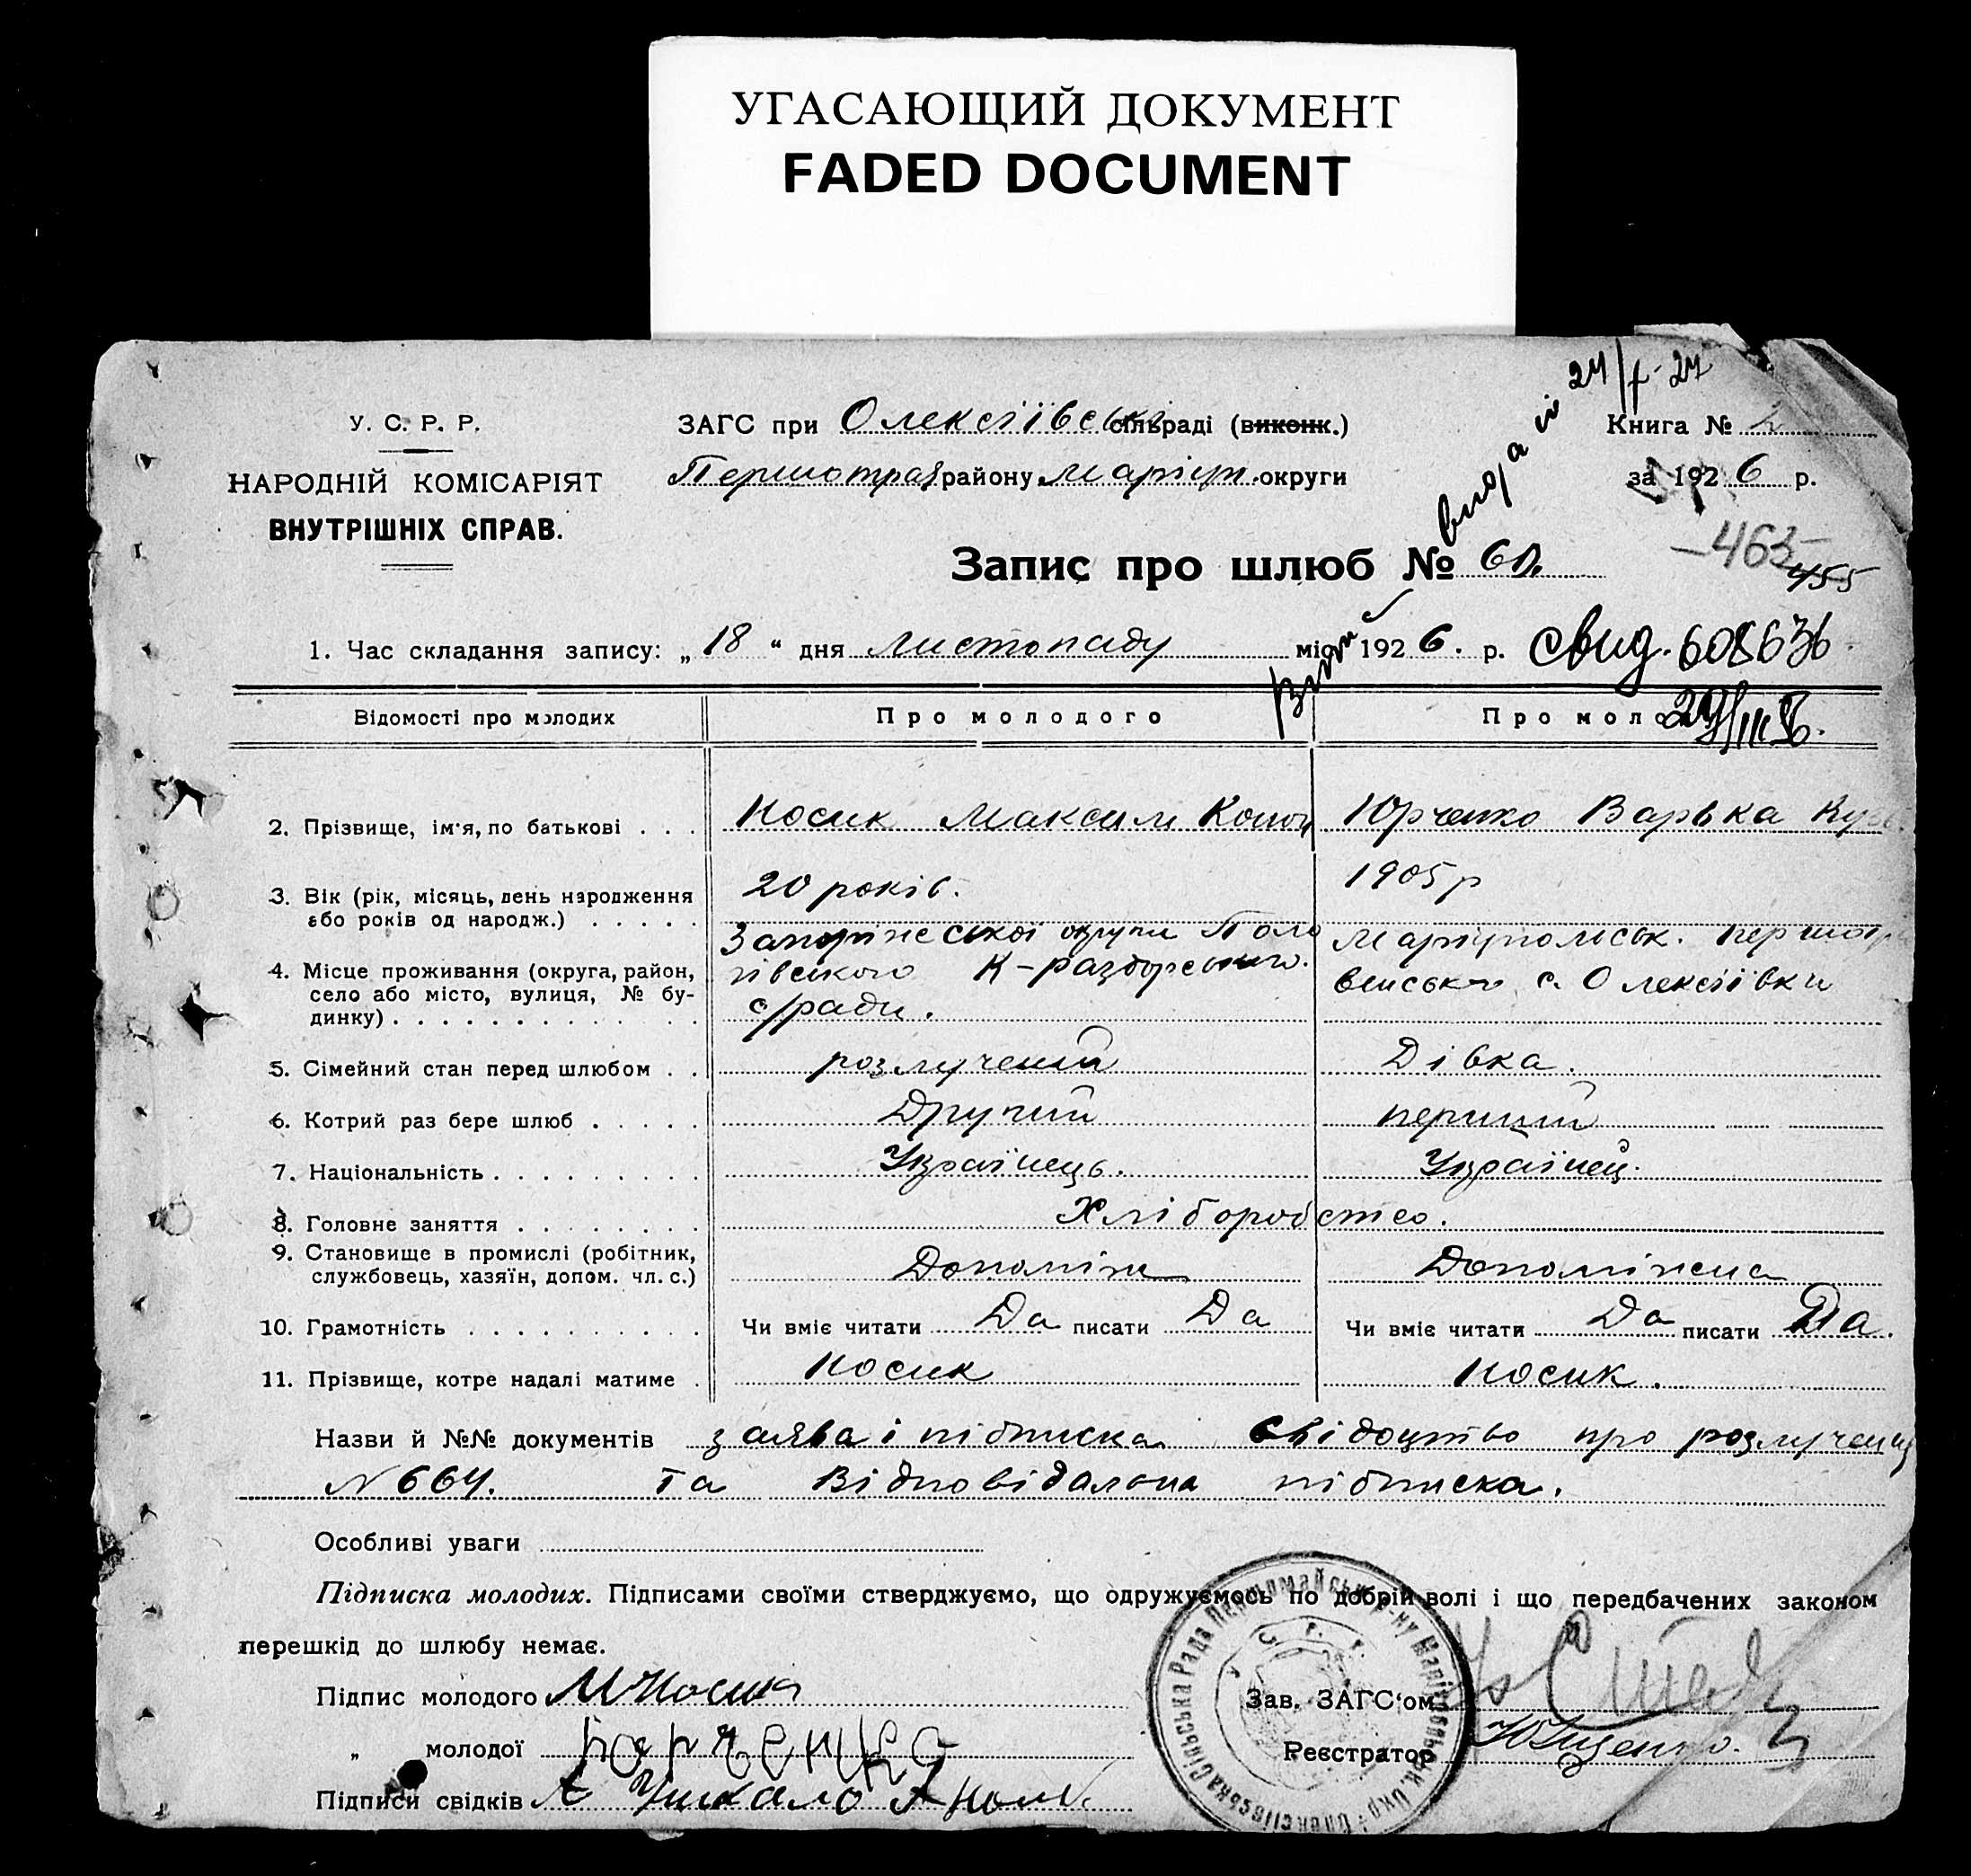 УГАСАЮЩИЙ ДОКУМЕНТ
FADED DOCUMENT
У. С. Р. Р.
НАРОДНІЙ КОМІСАРІЯТ
ВНУТРІШНІХ СПРАВ.
ЗАГС при Олексіївськ сільраді (виконк.)
Першотрав району Маріюп. округи
Книга № 2
за 1926 р.
видано 24/ - 27
Запис про шлюб № 60.
463
455
1. Час складання запису: „18 “ дня Листопаду міс. 1926. р.
свид. 608636
Відомості про молодих
Про молодого
Про моло
2. Прізвище, ім'я, по батькові . . .
Носик Максим Конон
Юрченко Варька Кузь
3. Вік (рік, місяць, день народження або років од народж.) . . . . .
20 років.
1905 р
4. Місце проживання (округа, район, село або місто, вулиця, № будинку) . . . . . . . . . .
Запоріжської округи Поло
гівського К-раздорського.
с/ради.
Маріупольськ. Першотра
венськ с. Олексіївки
5. Сімейний стан перед шлюбом . .
розлучений
Дівка.
6. Котрий раз бере шлюб . . . . .
Другий
перший
7. Національність . . . . . . . . .
Українець.
Українец.
8. Головне заняття . . . . . . . .
Хліборобство.
9. Становище в промислі (робітник, службовець, хазяїн, допом. чл. с.)
Допоміж
Допоміжна
10. Грамотність . . . . . . . . . .
Чи вміє читати Да писати Да
Чи вміє читати Да писати Да.
11. Прізвище, котре надалі матиме .
Носик
Носик.
Назви й №№ документів заява і підписка свідоцтво про розлучення
№ 664. та Відповідальна підписка.
Особливі уваги
Підписка молодих. Підписами своїми стверджуємо, що одружуємось по добрій волі і що передбачених законом
перешкід до шлюбу немає.
Підпис молодого МНосик
„ молодої
Підписи свідків
Зав. ЗАГС'ом
Реєстратор Ющенко.
Олексіївська Сільська Рада Першомайськ. р-ну Маріюпольськ. Окр.